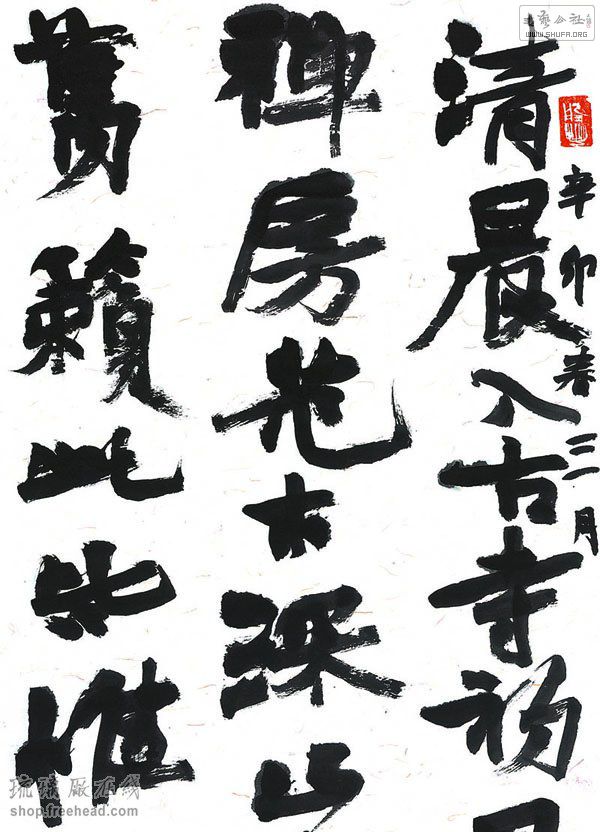 辛卯春三月
清晨入古寺初
禅房花木深山
萬籟此惟
书艺公社
WWW.SHUFA.ORG
琉璃廠在线
shop.freehead.com